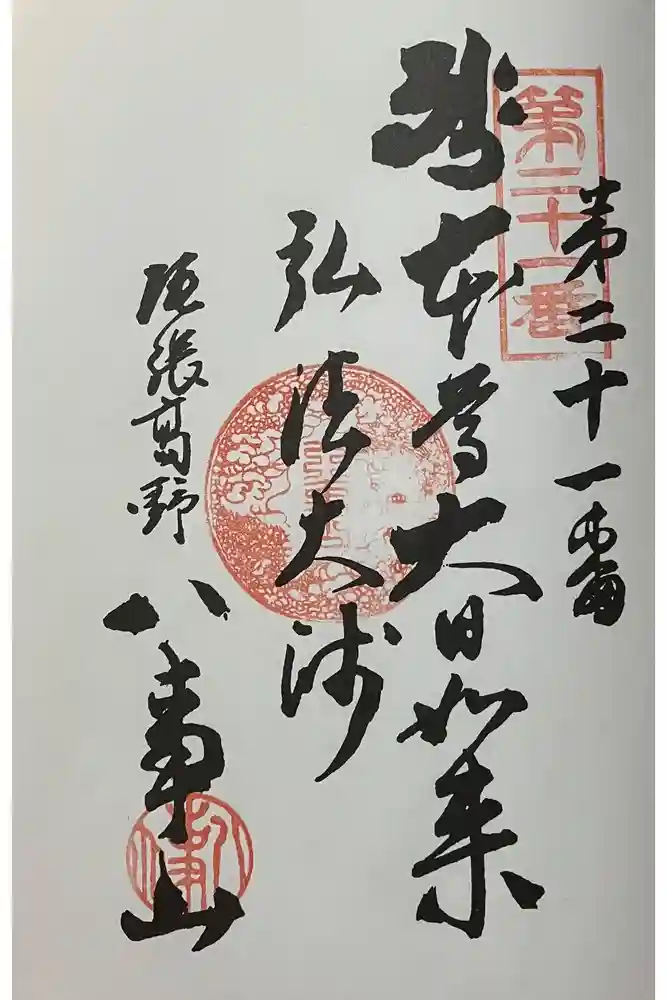 第二十一番
第二十一番
本尊大日如来
弘法大师
尾張高野
八事山
八事山